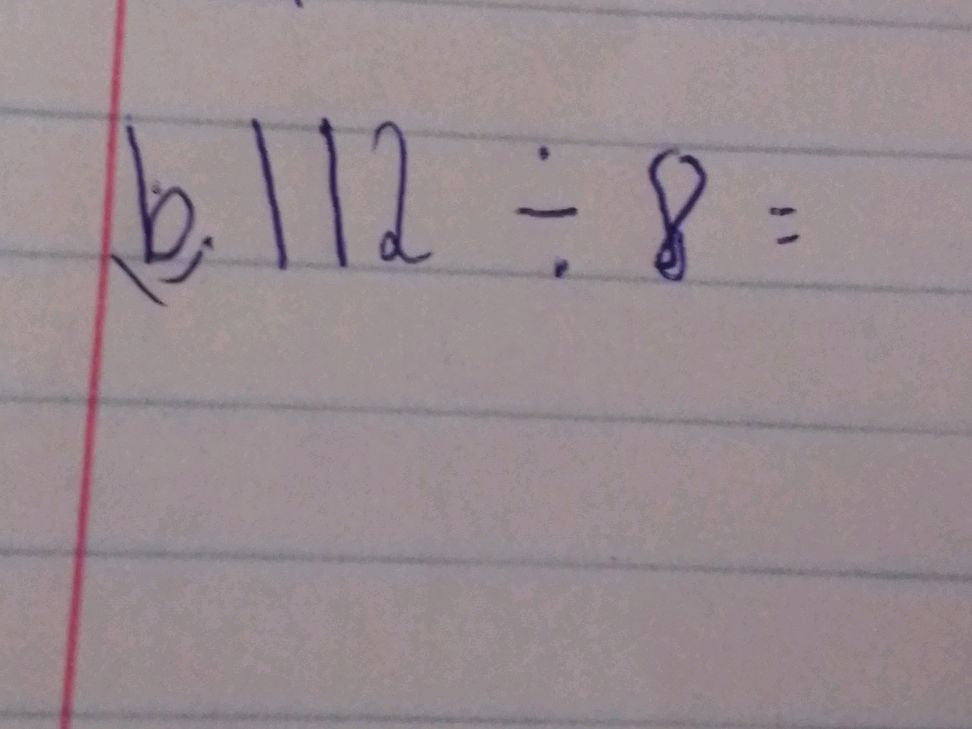 b. 112 ÷ 8 =